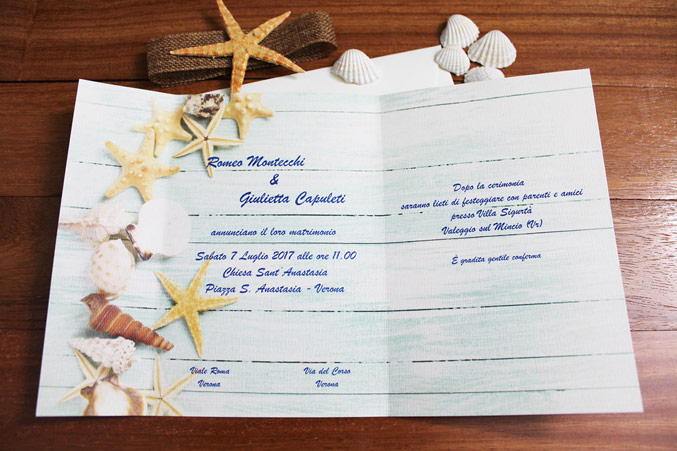 Romeo Montecchi
&
Giulietta Capuleti
annunciano il loro matrimonio
Sabato 7 Luglio 2017 alle ore 11.00
Chiesa Sant'Anastasia
Piazza S. Anastasia - Verona
Viale Roma
Verona
Via del Corso
Verona
Dopo la cerimonia
saranno lieti di festeggiare con parenti e amici
presso Villa Sigurtà
Valeggio sul Mincio (Vr)
È gradita gentile conferma